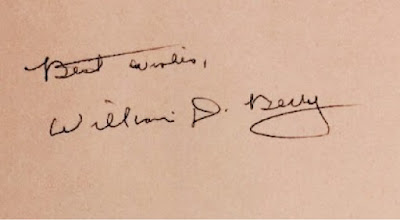 Best wishes,
William D. Berry